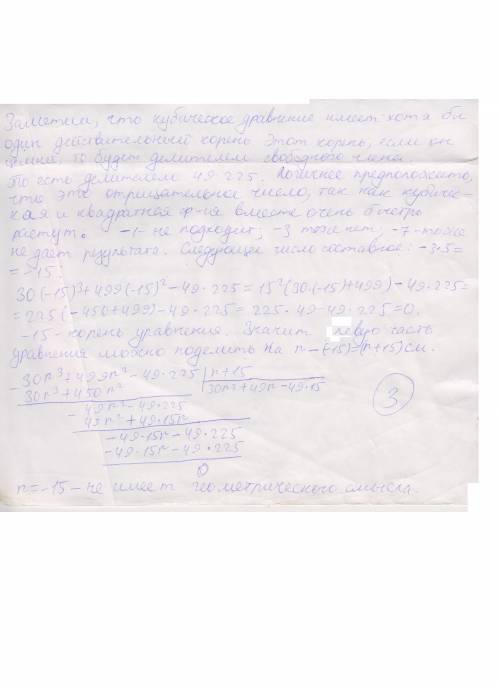 Заметим, что кубическое уравнение имеет хотя бы
один действительный корень. Этот корень, если он
целый, то будет делителем свободного члена.
То есть делителем 49·225. Логичнее предположить,
что это отрицательное число, так как кубичес-
кая и квадратная ф-ия вместе очень быстро
растут. -1 - не подходит; -3 тоже нет; -7 - тоже
не дает результата. Следующее число составное: -3·5=
= -15.
30(-15)³+499(-15)²-49·225=15²(30·(-15)+499)-49·225=
=225(-450+499)-49·225=225·49-49·225=0.
-15 - корень уравнения. Значит левую часть
уравнения можно поделить на r-(-15)=(r+15)см.
30r³+499r²-49·225 | r+15
30r³+450r² 30r²+49r-49·15
49r²-49·225
49r²+49·15r
-49·15r-49·225
-49·15r-49·225
0
3
r=-15 - не имеет геометрического смысла.